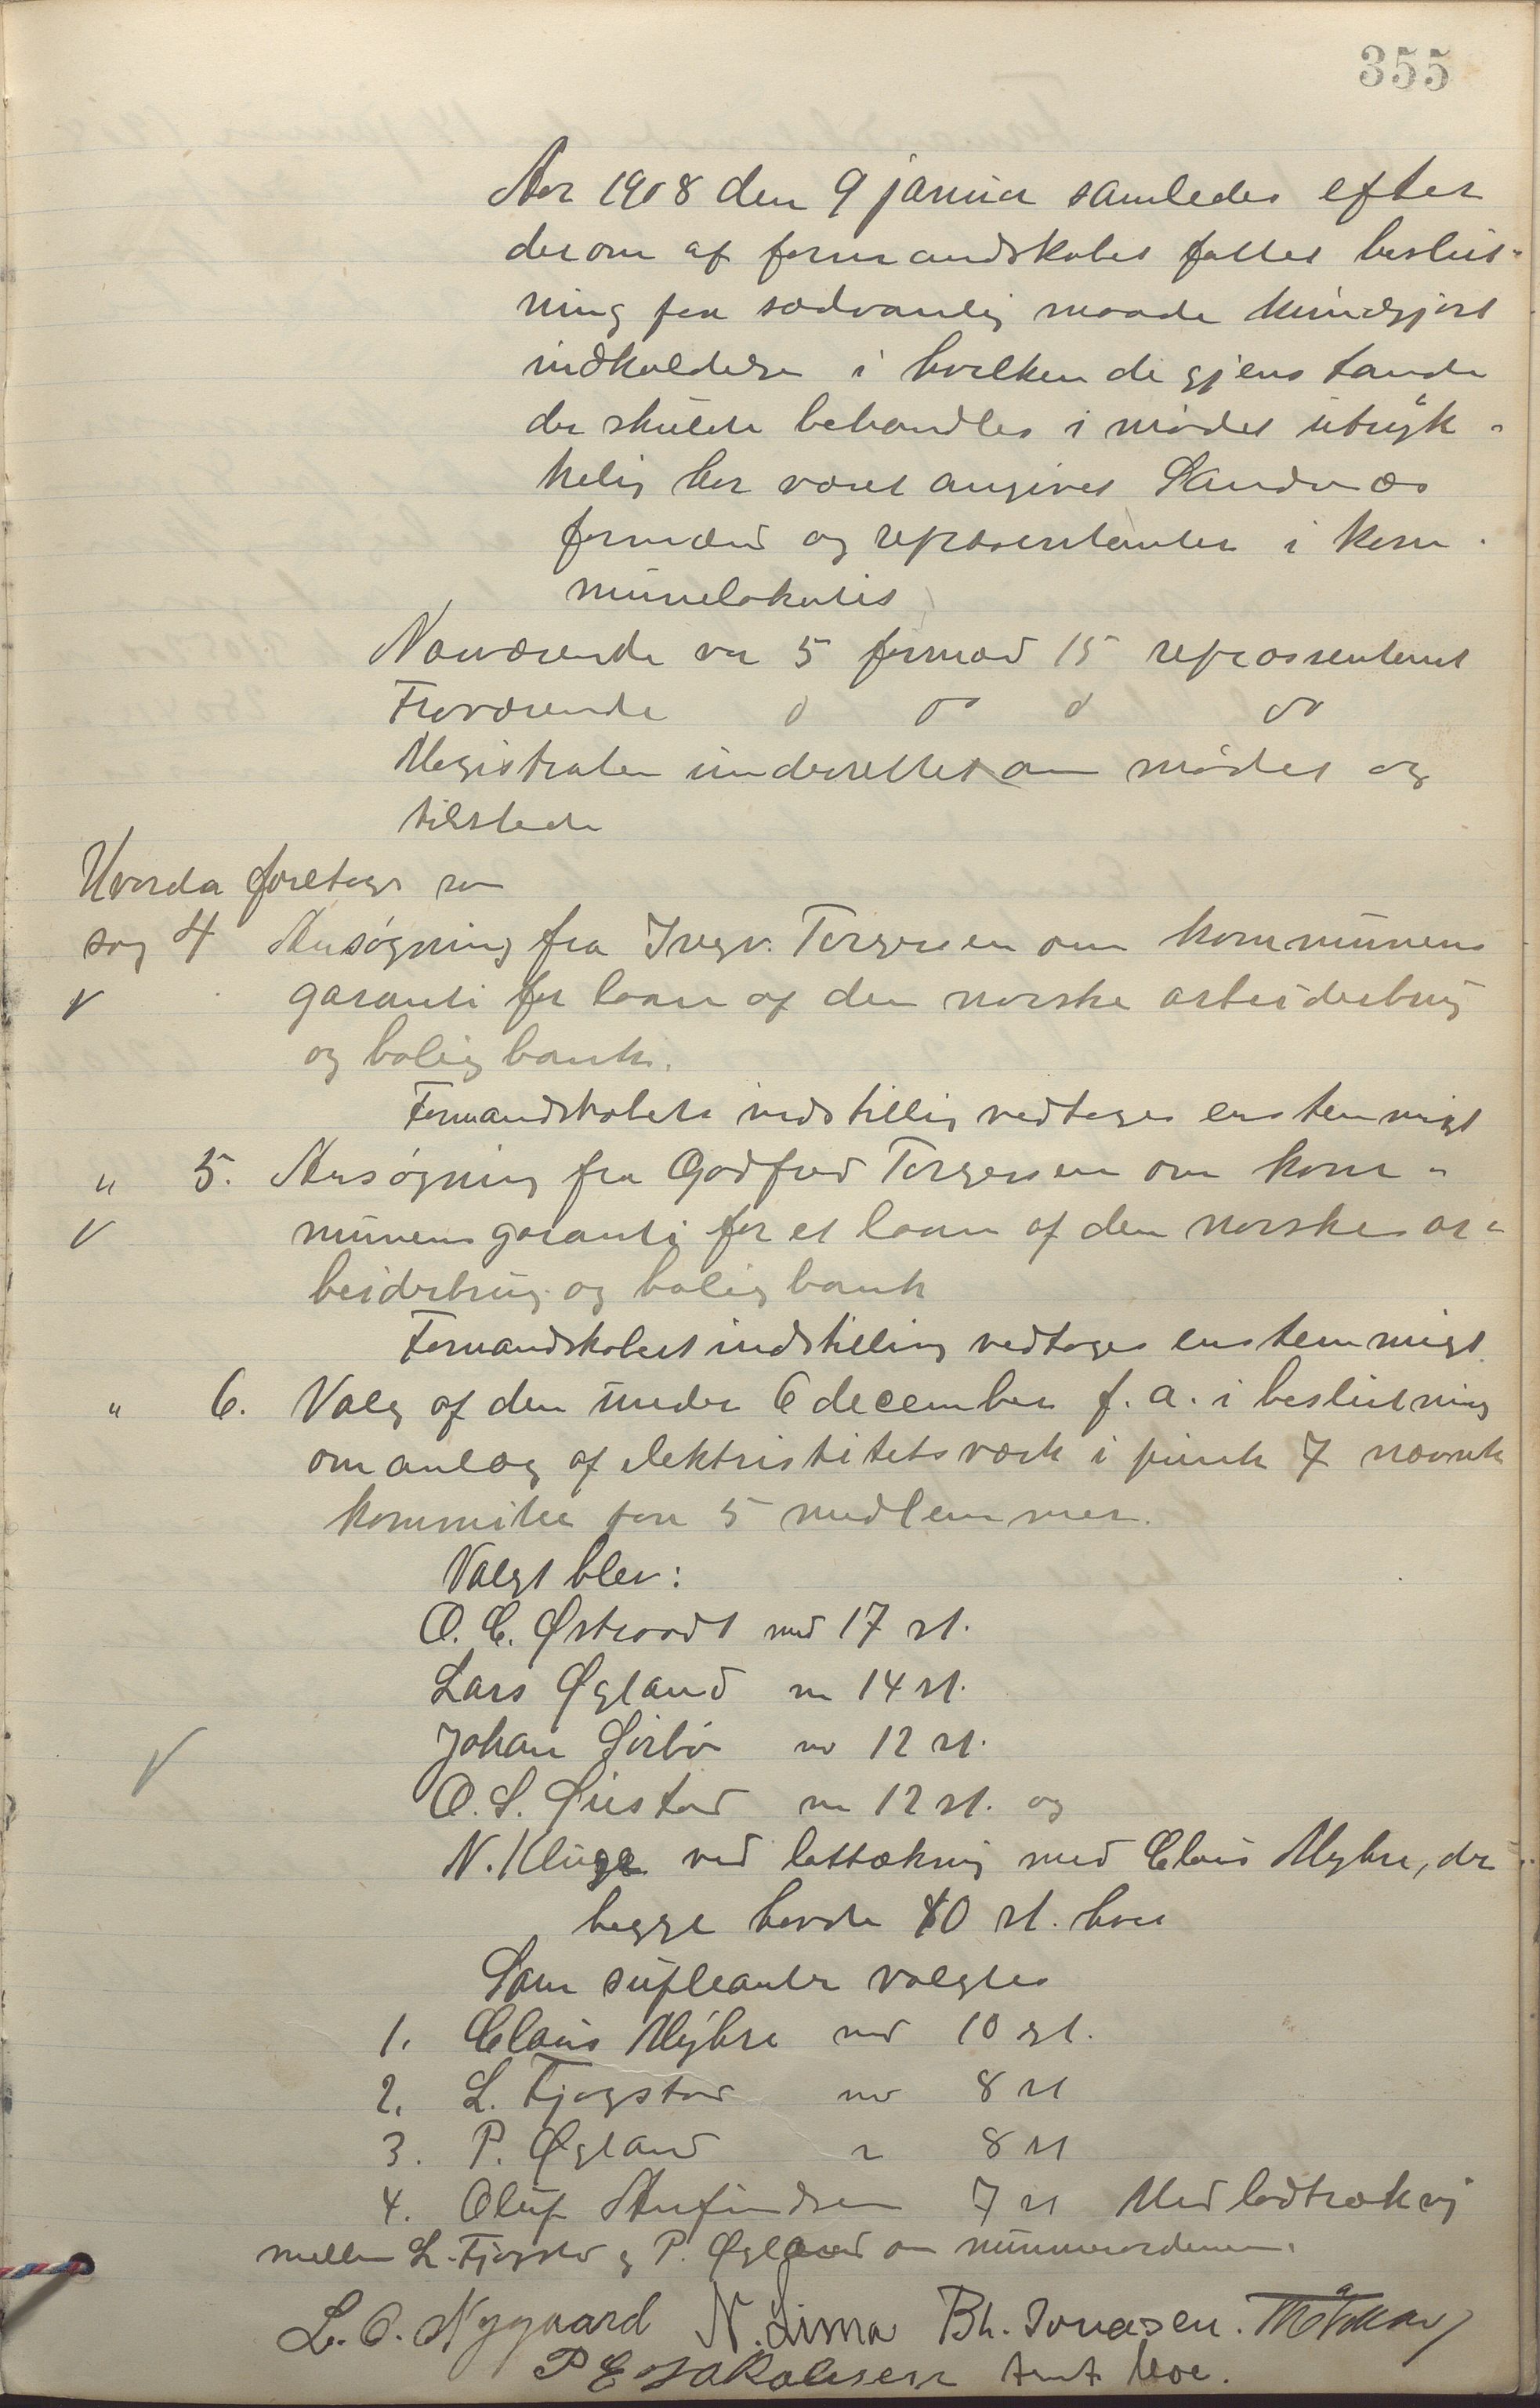 355
Aar 1908 den 9 januar samledes efter
derom af formandskabet fattet beslut-
ning paa sædvanlig maade kundgjort
indkaldelse i hvilken de gjenstande
der skulde behandles i mødet utryk-
kelig har været angivet Sandnæs
formænd og repræsentanter i kom-
munelokalet
Nærværende var 5 formænd 15 repræssentant
Fraværende 0 do 0 do
Magistraten underrettet om mødet og
tilstede
Hvorda foretoges som
sag 4 Ansøgning fra Ingv. Torgersen om kommunens
garanti for laan af den norske arbeiderbrug
og boligbank.
Formandskabets indstillig vedtages enstemmigt
" 5. Ansøgning fra Godfred Torgersen om kom-
munens garanti for et laan af den norske ar-
beiderbrug og boligbank
Formandskabets indstilling vedtages enstemmigt
" 6. Valg af den under 6 december f. a. i beslutning
om anlæg af elektristitetsværk i punkt 7 nævnte
kommite paa 5 medlemmer.
Valgt blev:
O. C. Østraadt med 17 st.
Lars Øgland m 14 st.
Johan Sørbø m 12 st.
O. S. m 12 st. og
N. Kluge ved lottækning med Claus Myhre, der
begge havde 10 st. hver
Som supleanter valgtes
1. Claus Myhre med 10 st.
2. L. Fjogstad med 8 st
3. P. Øgland " 8 st
4. Oluf Aufindsen 7 st Med lodtrækning
mellem L. Fjogstad og P. Øgland om nummerordenen.
L. O. Nygaard N. Lima Bh. Jonasen.
P E Jakobsen Arnt Moe.